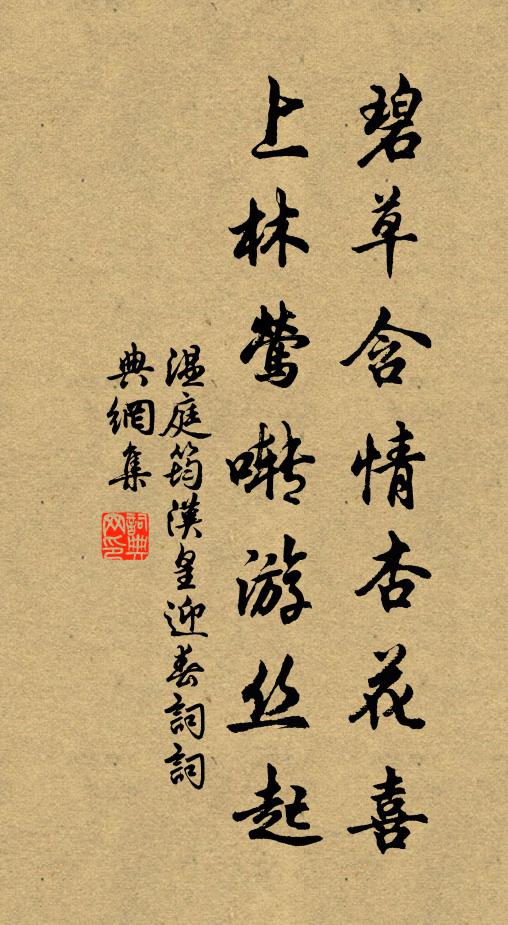 碧草含情杏花喜
上林莺啭游丝起
温庭筠漢皇迎春詞詞
典網集
詞典
网印